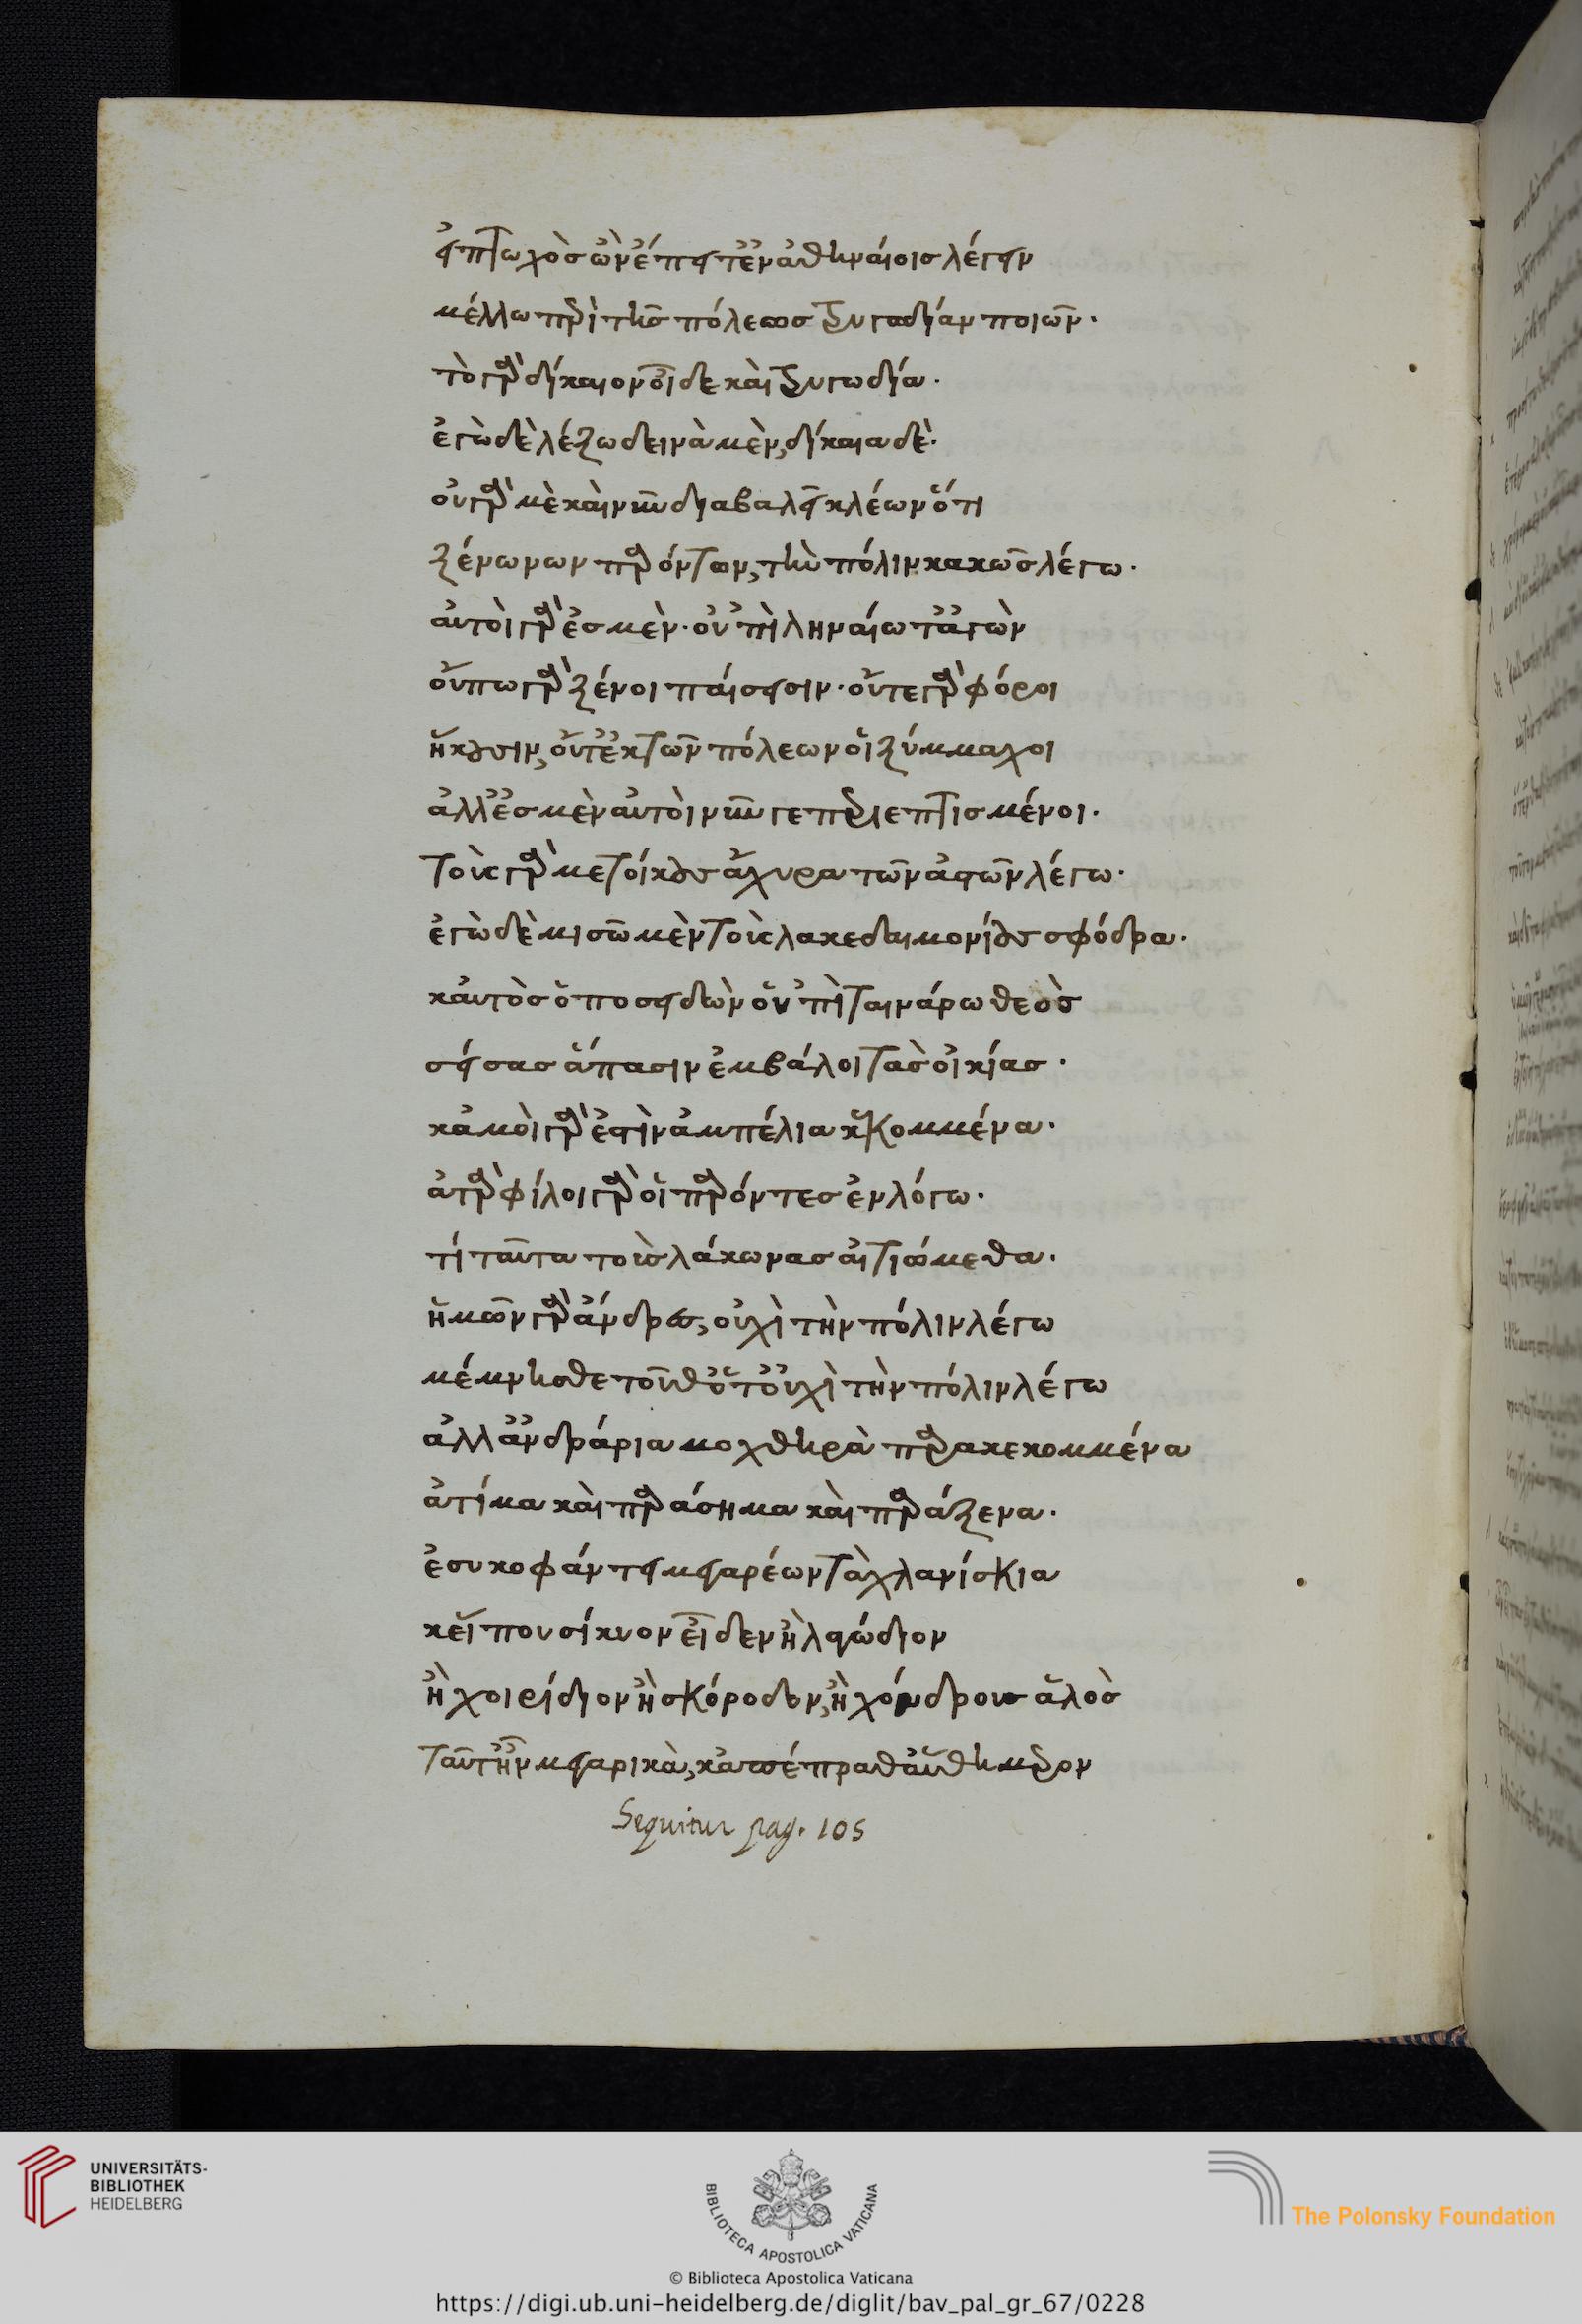 εἰ πτωχὸς ὢν ἔπειτ' ἐν ἀθηναίοις λέγειν
μέλλω περὶ τῆς πόλεως τρυγωδίαν ποιῶν.
τὸ γὰρ δίκαιον οἶδε καὶ τρυγωδία.
ἐγὼ δὲ λέξω δεινὰ μὲν, δίκαια δὲ.
οὐ γὰρ μὲ καὶ νῦν διαβαλεῖ κλέων ὅτι
ξένων ων παρόντων, τὴν πόλιν κακῶς λέγω.
αὐτοὶ γὰρ ἐσμὲν. οὐ 'πὶ ληναίω τ' ἀγὼν
οὔπω γὰρ ξένοι πάισεισιν. οὔτε γὰρ φόροι
ἥκουσιν, οὔτ' ἐκ τῶν πόλεων οἱ ξύμμαχοι
ἀλλ' ἐσμὲν αὐτοὶ νῦν γε περιεπτισμένοι.
τοὺς γὰρ μετοίκους ἄχυρα τῶν ἀστῶν λέγω.
ἐγὼ δὲ μισῶ μὲν τοὺς λακεδαιμονίους σφόδρα.
καὐτὸς ὁ ποσειδὼν οὑ 'πὶ ταινάρω θεὸς
σείσας ἅπασιν ἐμβάλοι τὰς οἰκίας.
κἀμοὶ γὰρ ἐστὶν ἀμπέλια κεκομμένα.
ἀτὰρ φίλοι γὰρ οἱ παρόντες ἐν λόγω.
τί ταῦτα τοὺς λάκωνας αἰτιώμεθα.
ἡμῶν γὰρ ἄνδρες, οὐχὶ τὴν πόλιν λέγω
μέμνησθε τοῦθ' ὅτ' οὐχὶ τὴν πόλιν λέγω
ἀλλ' ἀνδράρια μοχθηρὰ παρακεκομμένα
ἀτίμα καὶ παράσημα καὶ παράξενα.
ἐσυκοφάντει μεγαρέων τὰ χλανίσκια
κεἴ που σίκυον εἶδεν ἢ λαγώδιον
ἢ χοιρίδιον ἢ σκόροδον, ἢ χόνδρους ἅλος
ταῦτ' ἦν μεγαρικὰ, κἀπέπρατ' αὐθήμερον
Sequitur pag. 105
UNIVERSITÄTS-
BIBLIOTHEK
HEIDELBERG
BIBLIOTECA APOSTOLICA VATICANA
The Polonsky Foundation
© Biblioteca Apostolica Vaticana
https://digi.ub.uni-heidelberg.de/diglit/bav_pal_gr_67/0228